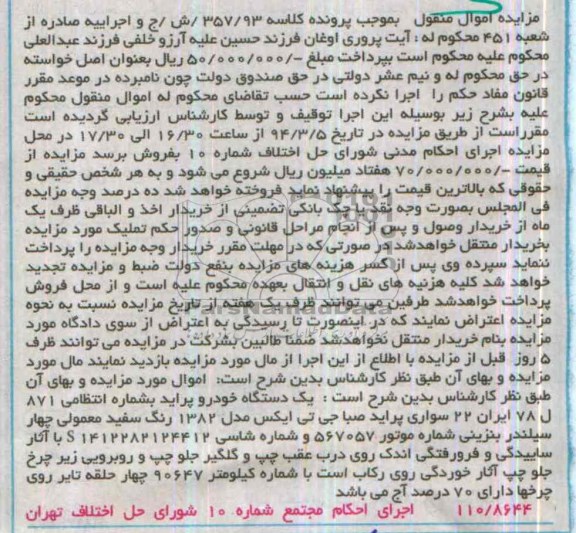 مزایده اموال منقول بموجب پرونده کلاسه ۳۵۷/۹۳ /ش /ج و اجراییه صادره از
شعبه ۴۵۱ محکوم له : آیت پروری اوغان فرزند حسین علیه آرزو خلفی فرزند عبدالعلی
محکوم علیه محکوم است بپرداخت مبلغ -/۵۰/۰۰۰/۰۰۰ ریال بعنوان اصل خواسته
در حق محکوم له و نیم عشر دولتی در حق صندوق دولت چون نامبرده در موعد مقرر
قانون مفاد حکم را اجرا نکرده است حسب تقاضای محکوم له اموال منقول محکوم
علیه بشرح زیر بوسیله این اجرا توقیف و توسط کارشناس ارزیابی گردیده است
مقرراست از طریق مزایده در تاریخ ۹۴/۳/۵ از ساعت ۱۶/۳۰ الی ۱۷/۳۰ در محل
مزایده اجرای احکام مدنی شورای حل اختلاف شماره ۱۰ بفروش برسد مزایده از
قیمت -/۷۰/۰۰۰/۰۰۰ هفتاد میلیون ریال شروع می شود و به هر شخص حقیقی و
حقوقی که بالاترین قیمت را پیشنهاد نماید فروخته خواهد شد ده درصد وجه مزایده
فی المجلس بصورت وجه نقدیاچک بانکی تضمینی از خریدار اخذ و الباقی ظرف یک
ماه از خریدار وصول و پس از انجام مراحل قانونی و صدور حکم تملیک مورد مزایده
بخریدار منتقل خواهدشد در صورتی که در مهلت مقرر خریدار وجه مزایده را پرداخت
ننماید سپرده وی پس از کسر هزینه های مزایده بنفع دولت ضبط و مزایده تجدید
خواهد شد کلیه هزنیه های نقل و انتقال بعهده محکوم علیه است و از محل فروش
پرداخت خواهدشد طرفین می توانند ظرف یک هفته از تاریخ مزایده نسبت به نحوه
مزایده اعتراض نمایند که در اینصورت تا رسیدگی به اعتراض از سوی دادگاه مورد
مزایده بنام خریدار منتقل نخواهدشد ضمنا طالبین بشرکت در مزایده می توانند ظرف
۵ روز قبل از مزایده با اطلاع از این اجرا از مال مورد مزایده بازدید نمایند مال مورد
مزایده و بهای آن طبق نظر کارشناس بدین شرح است: اموال مورد مزایده و بهای آن
طبق نظر کارشناس بدین شرح است : یک دستگاه خودرو پراید بشماره انتظامی ۸۷۱
ل ۷۸ ایران ۲۲ سواری پراید صبا جی تی ایکس مدل ۱۳۸۲ رنگ سفید معمولی چهار
سیلندر بنزینی شماره موتور ۵۶۷۰۵۷ و شماره شاسی S ۱۴۱۲۲۸۲۱۲۴۴۱۲ با آثار
ساییدگی و فرورفتگی اندک روی درب عقب چپ و گلگیر جلو چپ و روبرویی زیر چرخ
جلو چپ آثار خوردگی روی رکاب است با شماره کیلومتر ۹۰۶۴۷ چهار حلقه تایر روی
چرخها دارای ۷۰ درصد آج می باشد
۱۱۰/۸۶۴۴ اجرای احکام مجتمع شماره ۱۰ شورای حل اختلاف تهران